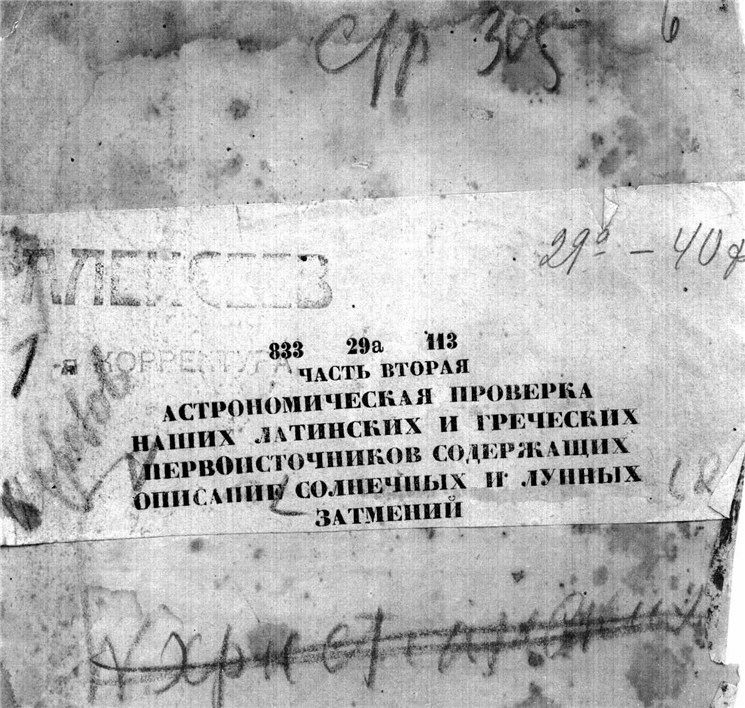 Стр 305
6
29а – 40ф
АЛЕКСЕЕВ
1
-я КОРРЕКТУРА
833 29а 113
ЧАСТЬ ВТОРАЯ
АСТРОНОМИЧЕСКАЯ ПРОВЕРКА
НАШИХ ЛАТИНСКИХ И ГРЕЧЕСКИХ
ПЕРВОИСТОЧНИКОВ СОДЕРЖАЩИХ
ОПИСАНИЕ СОЛНЕЧНЫХ И ЛУННЫХ
ЗАТМЕНИЙ